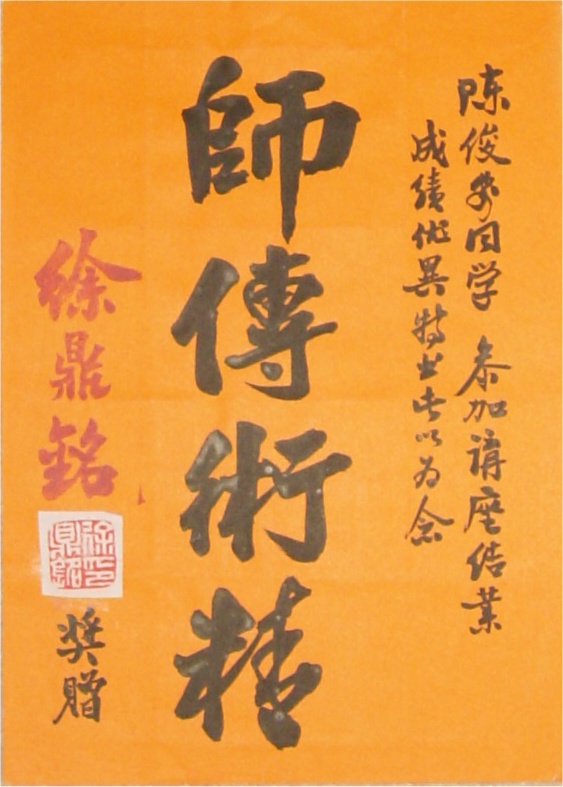 陈俊同学 参加講座结業
成績优異特书此以为念
師傳術精
徐鼎銘
徐印
鼎銘
奖贈